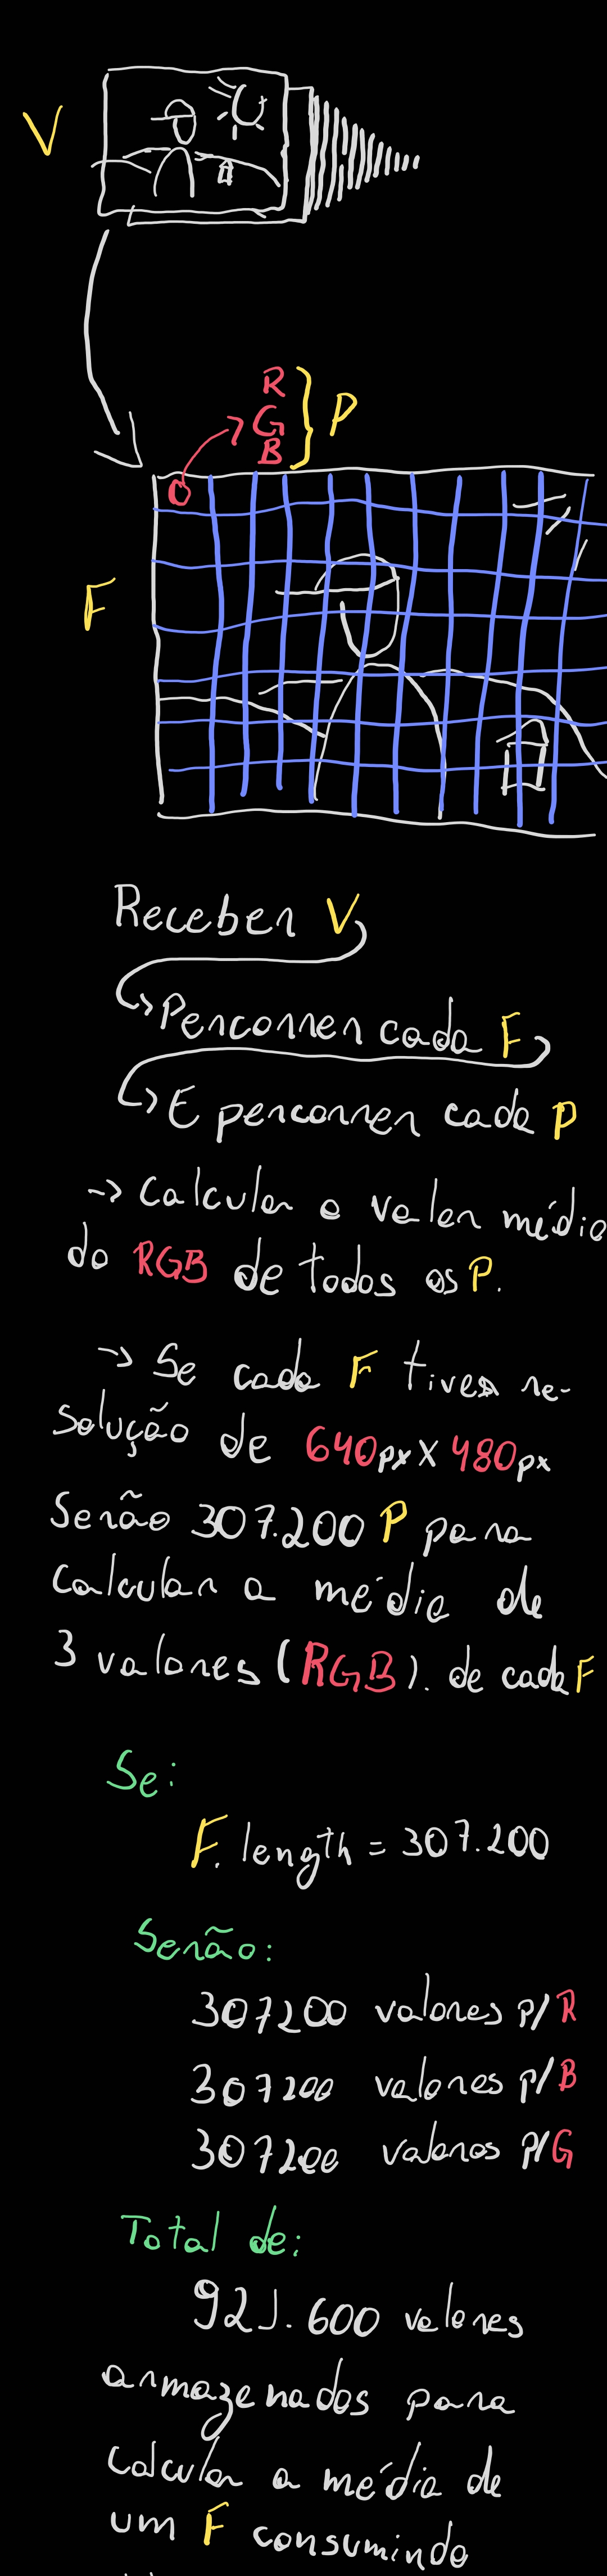 V
R
G
B
P
F
Receber V
Percorrer cada F
E percorrer cada P
-> Calcular o valor médio
do RGB de todos os P.
-> Se cada F tiver re-
solução de 640px X 480px
Serão 307.200 P para
calcular a média de
3 valores (RGB). de cada F
Se:
F.length = 307.200
Serão:
307200 valores p/ R
307200 valores p/ B
307200 valores p/ G
Total de:
921.600 valores
armazenados para
calcular a média de
um F consumindo